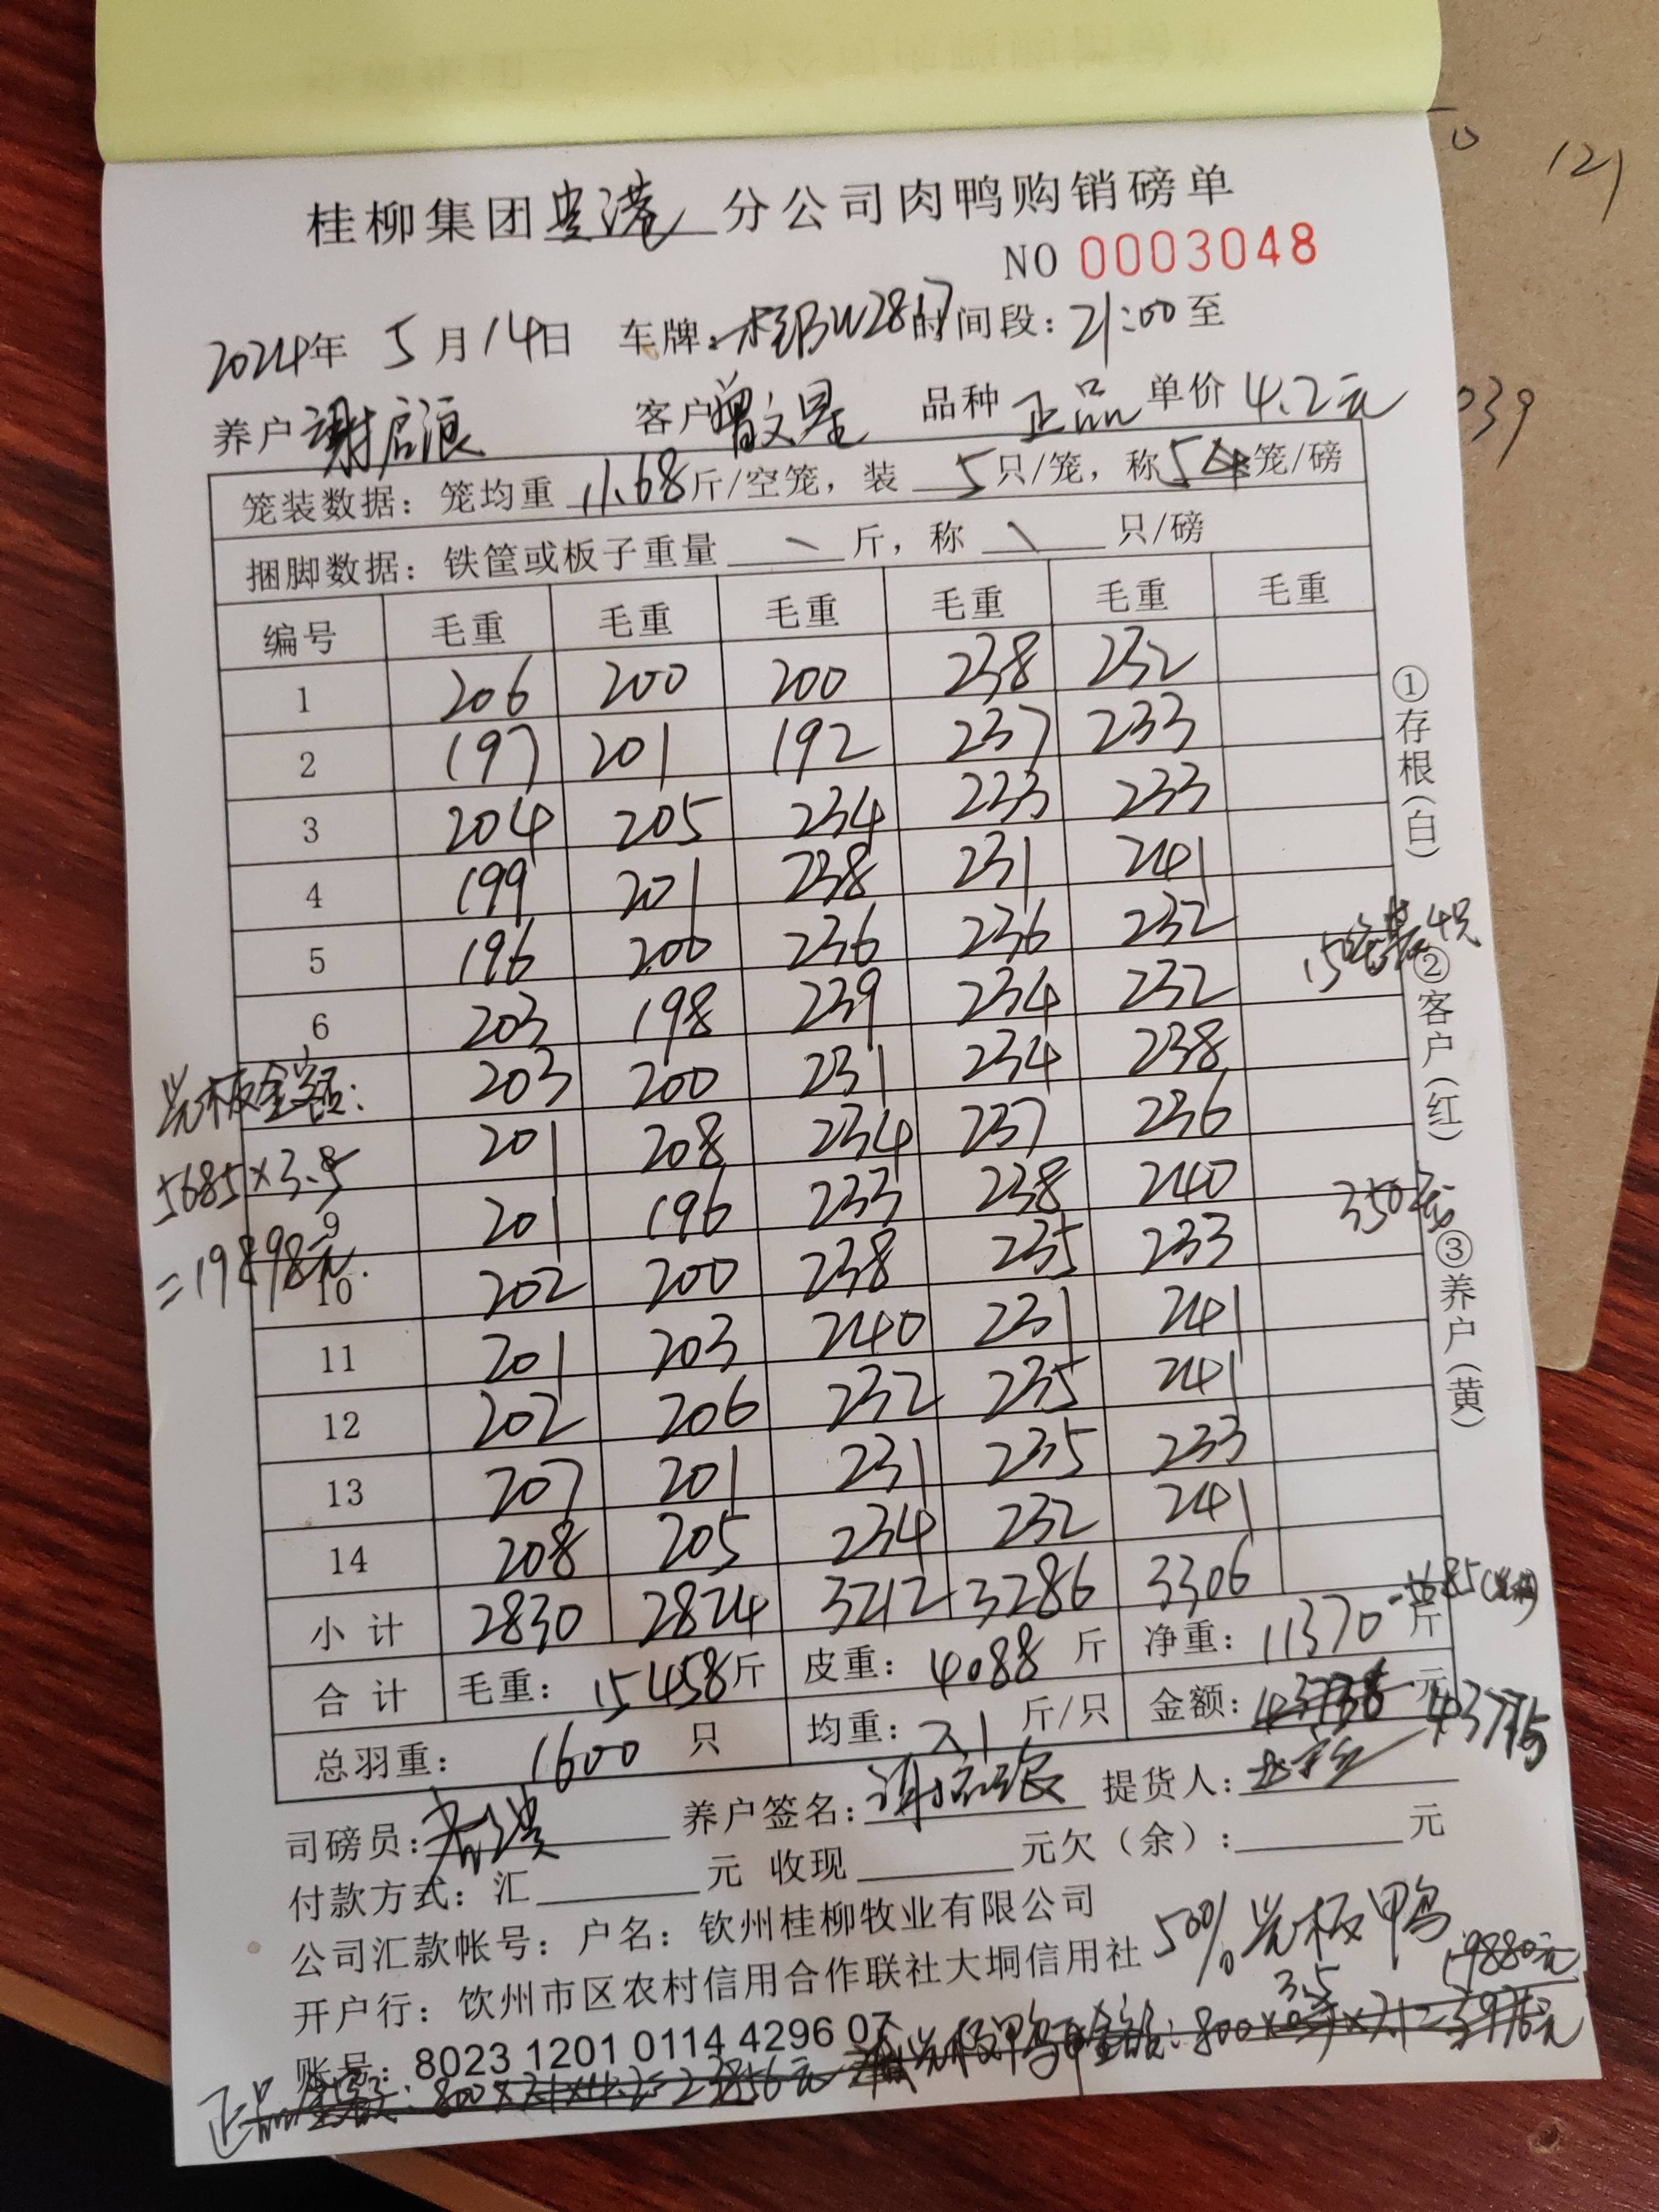 桂柳集团贵港分公司肉鸭购销磅单
NO 0003048
2024年 5月14日 车牌:桂BW2817时间段:21:00至
养户谢启浪 客户曾文星 品种正品 单价4.2元
笼装数据:笼均重 11.68斤/空笼,装 5只/笼,称5 笼/磅
捆脚数据:铁筐或板子重量 \ 斤,称 \ 只/磅
编号 毛重 毛重 毛重 毛重 毛重 毛重
1 206 200 200 238 232
2 197 201 192 237 233
3 204 205 234 233 233
4 199 201 238 231 241
5 196 200 236 236 232
6 203 198 239 234 232
203 200 231 234 238
201 208 234 237 236
9 201 196 233 238 240
10 202 200 238 235 233
11 201 203 240 231 241
12 202 206 232 235 241
13 207 201 231 235 233
14 208 205 234 232 241
小计 2830 2824 3212 3286 3306
合计 毛重:15458斤 皮重:4088 斤 净重:11370 斤
总羽重: 1600 只 均重:7.1 斤/只 金额: 元 43775
司磅员: 养户签名:谢启浪 提货人:
付款方式:汇 元 收现 元欠(余): 元
公司汇款帐号:户名:钦州桂柳牧业有限公司
开户行:钦州市区农村信用合作联社大垌信用社
账号:8023 1201 0114 4296 07
50%光板鸭
19880元
光板金额:
5685×3.5
=19898元
①存根(白)
②客户(红)
③养户(黄)
4只
350
5685
正品金额:800×7.1×4.2=23856元
光板鸭金额:800×3.5×7.1=
121
039